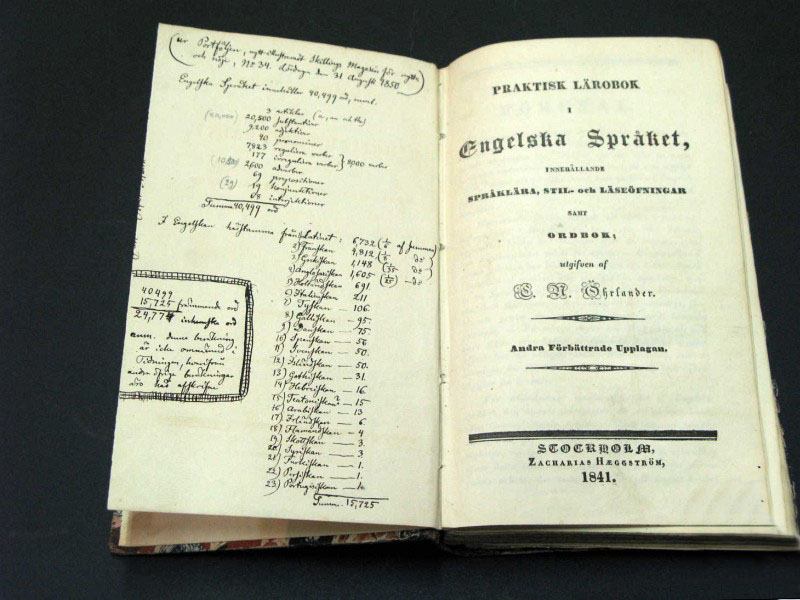 (ur Portföljen, nytt illustreradt Skillings Magasin för nytta
och nöje, No 34. Lördagen den 31 Augusti 1850)
Engelska Språket innehåller 40,499 ord, neml.
3 artiklar (a, an ach the)
20,500 substantiver
9,200 adjektiver
40 pronominer
7823 regulära verber
177 irregulära verber } 8000 verber
2600 adverber
69 prepositioner
19 konjunktioner
68 interjektioner
Summa 40,499 ord
I Engelskan härstamma från Latinet: 6,732 af summan
2) Franskan 4,812
3) Grekiskan 1,148
4) Anglosaxiskan 1,605
5) Holländskan 691
6) Italienskan 211
7) Tyskan 106.
8) Galliskan 95.
9) Danskan 75.
10) Spanskan 56
11) Svenskan 50.
12) Isländskan 50.
13) Gothiskan 31.
14) Hebreiskan 16
15) Teutoniskan? 15
16) Arabiskan 13
17) Irländskan 6
18) Flamandskan 4
19) Skottskan 3.
20) Syriskan 3.
21) Turkiskan 1.
22) Persiskan 1.
23) Portugisiskan 1.
Summa 15,725
40499
15,725 främmande ord
24,774 inhemska ord
anm. denna beräkning
är icke omnämnd i
Tidningen, hvarifrån
andra öfriga beräkningar
äro här afskrifne
PRAKTISK LÄROBOK
I
Engelska Språket,
INNEHÅLLANDE
SPRÅKLÄRA, STIL- och LÄSEÖFNINGAR
SAMT
ORDBOK;
utgifven af
C. N. Öhrlander.
Andra Förbättrade Upplagan.
STOCKHOLM,
ZACHARIAS HÆGGSTRÖM,
1841.